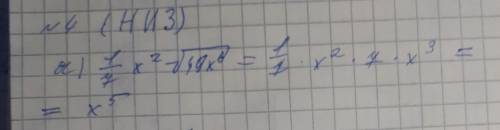 №4 (НИЗ)
а) 1/7 x² √49x⁶ = 1/7 · x² · 7 · x³ =
= x⁵